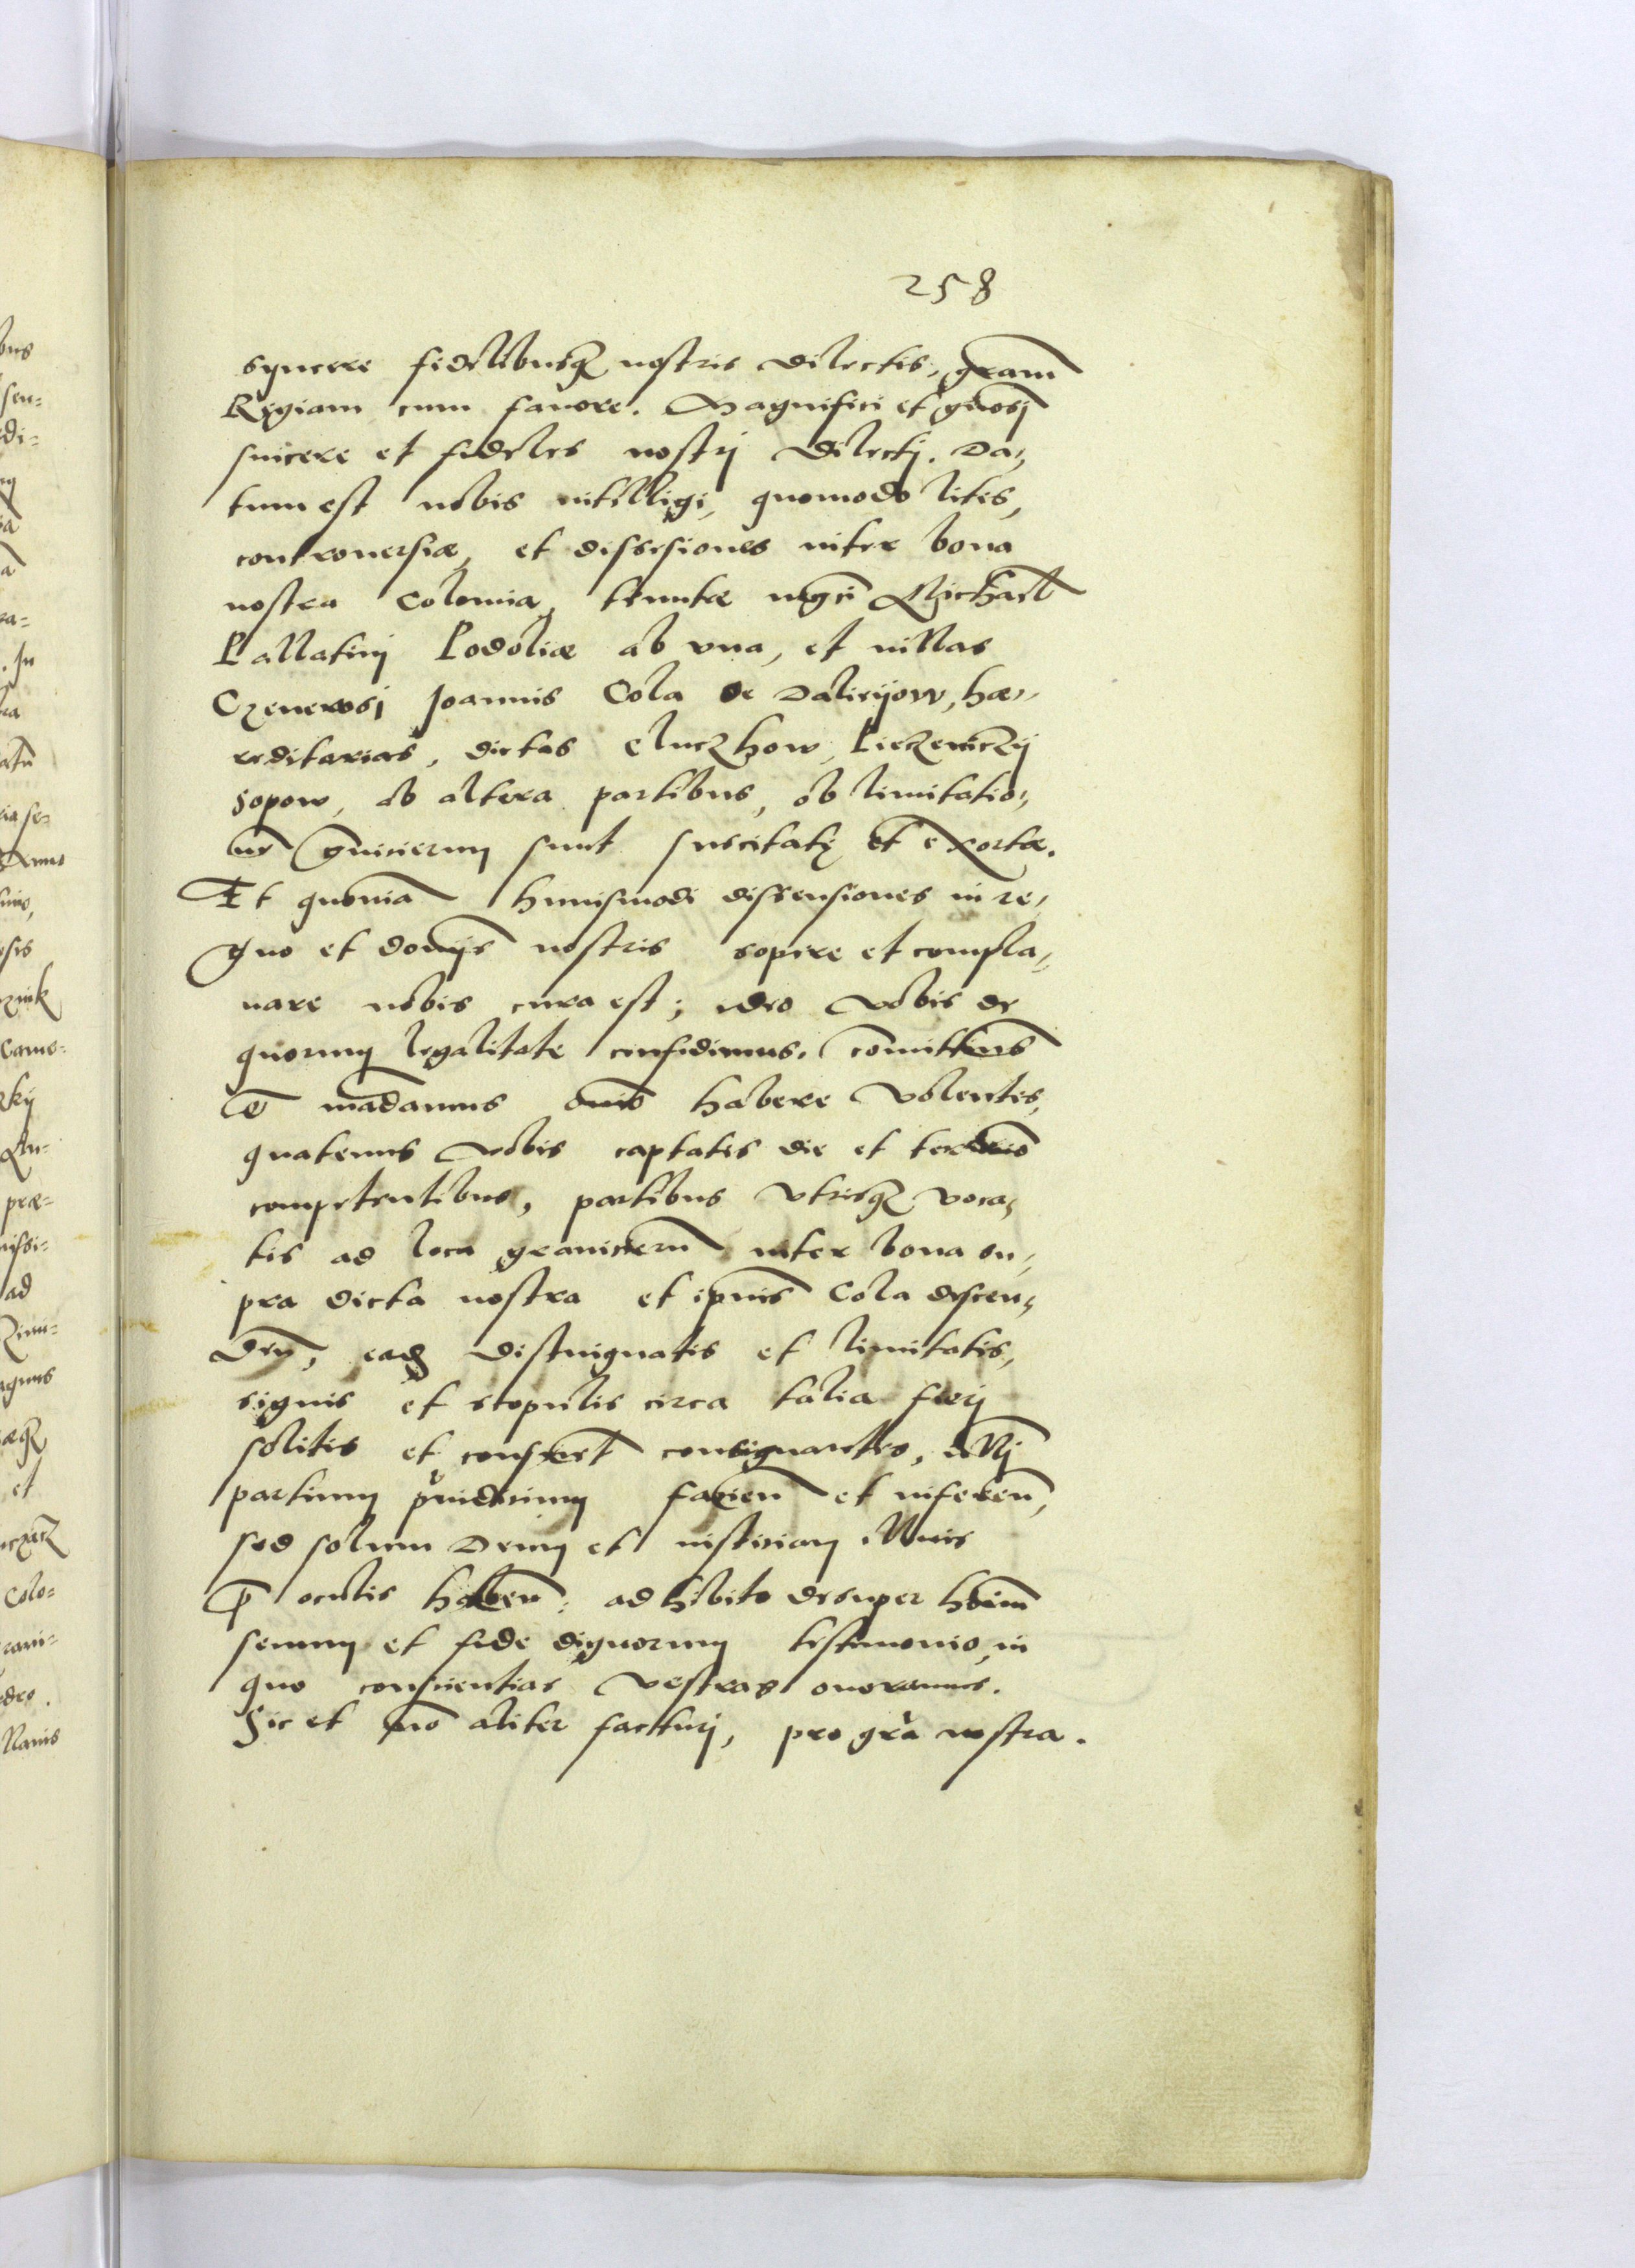 258
syncere fidelibusq nostris dilectis, gram
Regiam cum fauore. Magnifici et gnosi
sincere et fideles nostrj dilectj. Da,
tum est nobis intelligi, quomodo lites,
controuersiæ, et dissesiones inter bona
nostra Colomia, tenutæ mgci Michael
Pallatinj Podoliæ ab vna, et villas
Generosj Joannis Cola de Daliejow, hæ,
reditarias, dictas Cluczhow, Pieczeniczij
Sopow, ab altera partibus, ob limitatio,
ne granicierum sunt suscitatę et exortæ.
Et quonia huiusmodi dissensiones in re,
gno et domijs nostris sopire et compla,
nare nobis cura est; ideo vobis de
quorum legalitate confidimus, comittens
e madamus omis habere volentes,
quatenus vobis captatis die et termino
competentibus, partibus vtrisq voca,
tis ad loca granicierum inter bona su,
pra dicta nostra et ipius Cola descen,
den, eaq distinguatis et limitatis,
signis et scopulis circa talia fierj
solitis et consuet consignantes, nllj
partium priudicium facien et inferen,
sed solum Deum et iusticiam illius
p oculis haben: adhibito desuper hoim
senum et fide dignorum testimonio, in
quo conscientias vestras oneramus.
Sic et no aliter facturj, pro gra nostra.